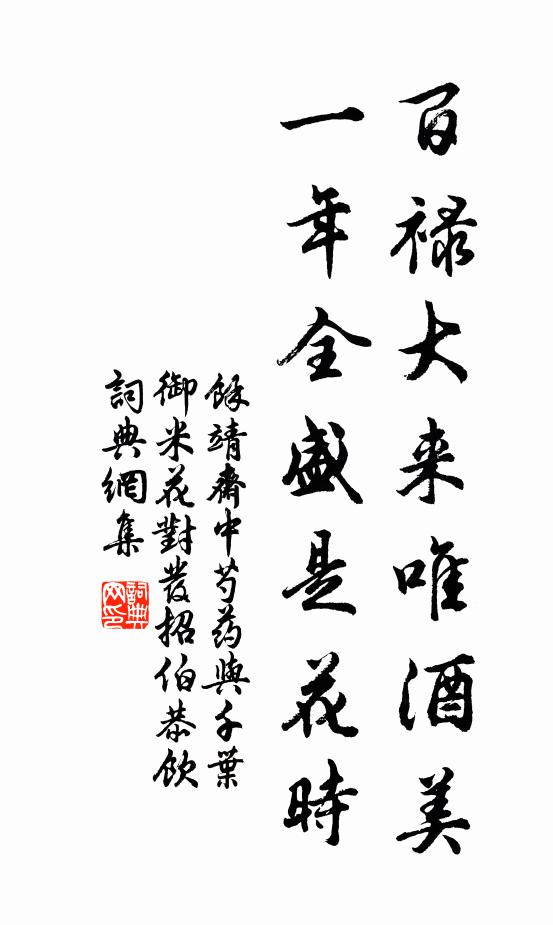 百禄大来唯酒美
一年全盛是花時
餘靖齋中芍药與千葉
御米花對發招伯恭飲
詞典網集
詞典网印